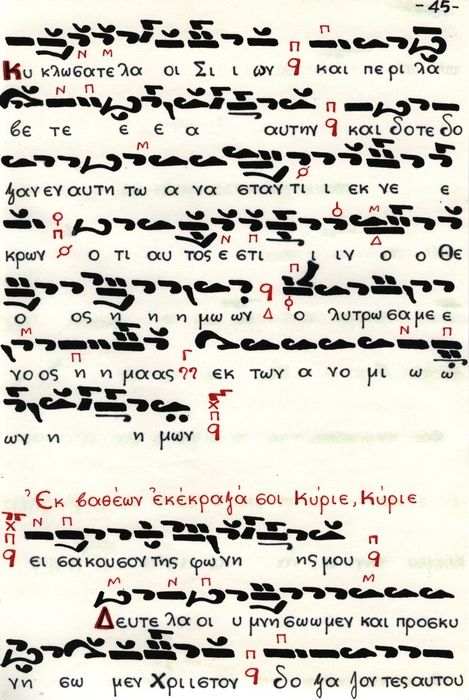 -45-
Κυ κλωσατε λα οι Σι ι ων και περι λα
βε τε ε ε α αυτην και δοτε δο
ξαν εν αυτη τω α να σταν τι ι εκ νε ε
κρων ο τι αυ τος ε στι ι ιν ο ο Θε
ο ος η η η μω ων ο λυτρω σα με ε
νο ος η η μα ας εκ των α νο μι ω ω
ων η η μων
Ἐκ βαθέων ἐκέκραξά σοι Κύριε, Κύριε
ει σα κουσον της φω νη ης μου
Δευτε λα οι υ μνη σω ω μεν και προσκυ
νη σω μεν Χρι ι στον δο ξα ζον τες αυτου